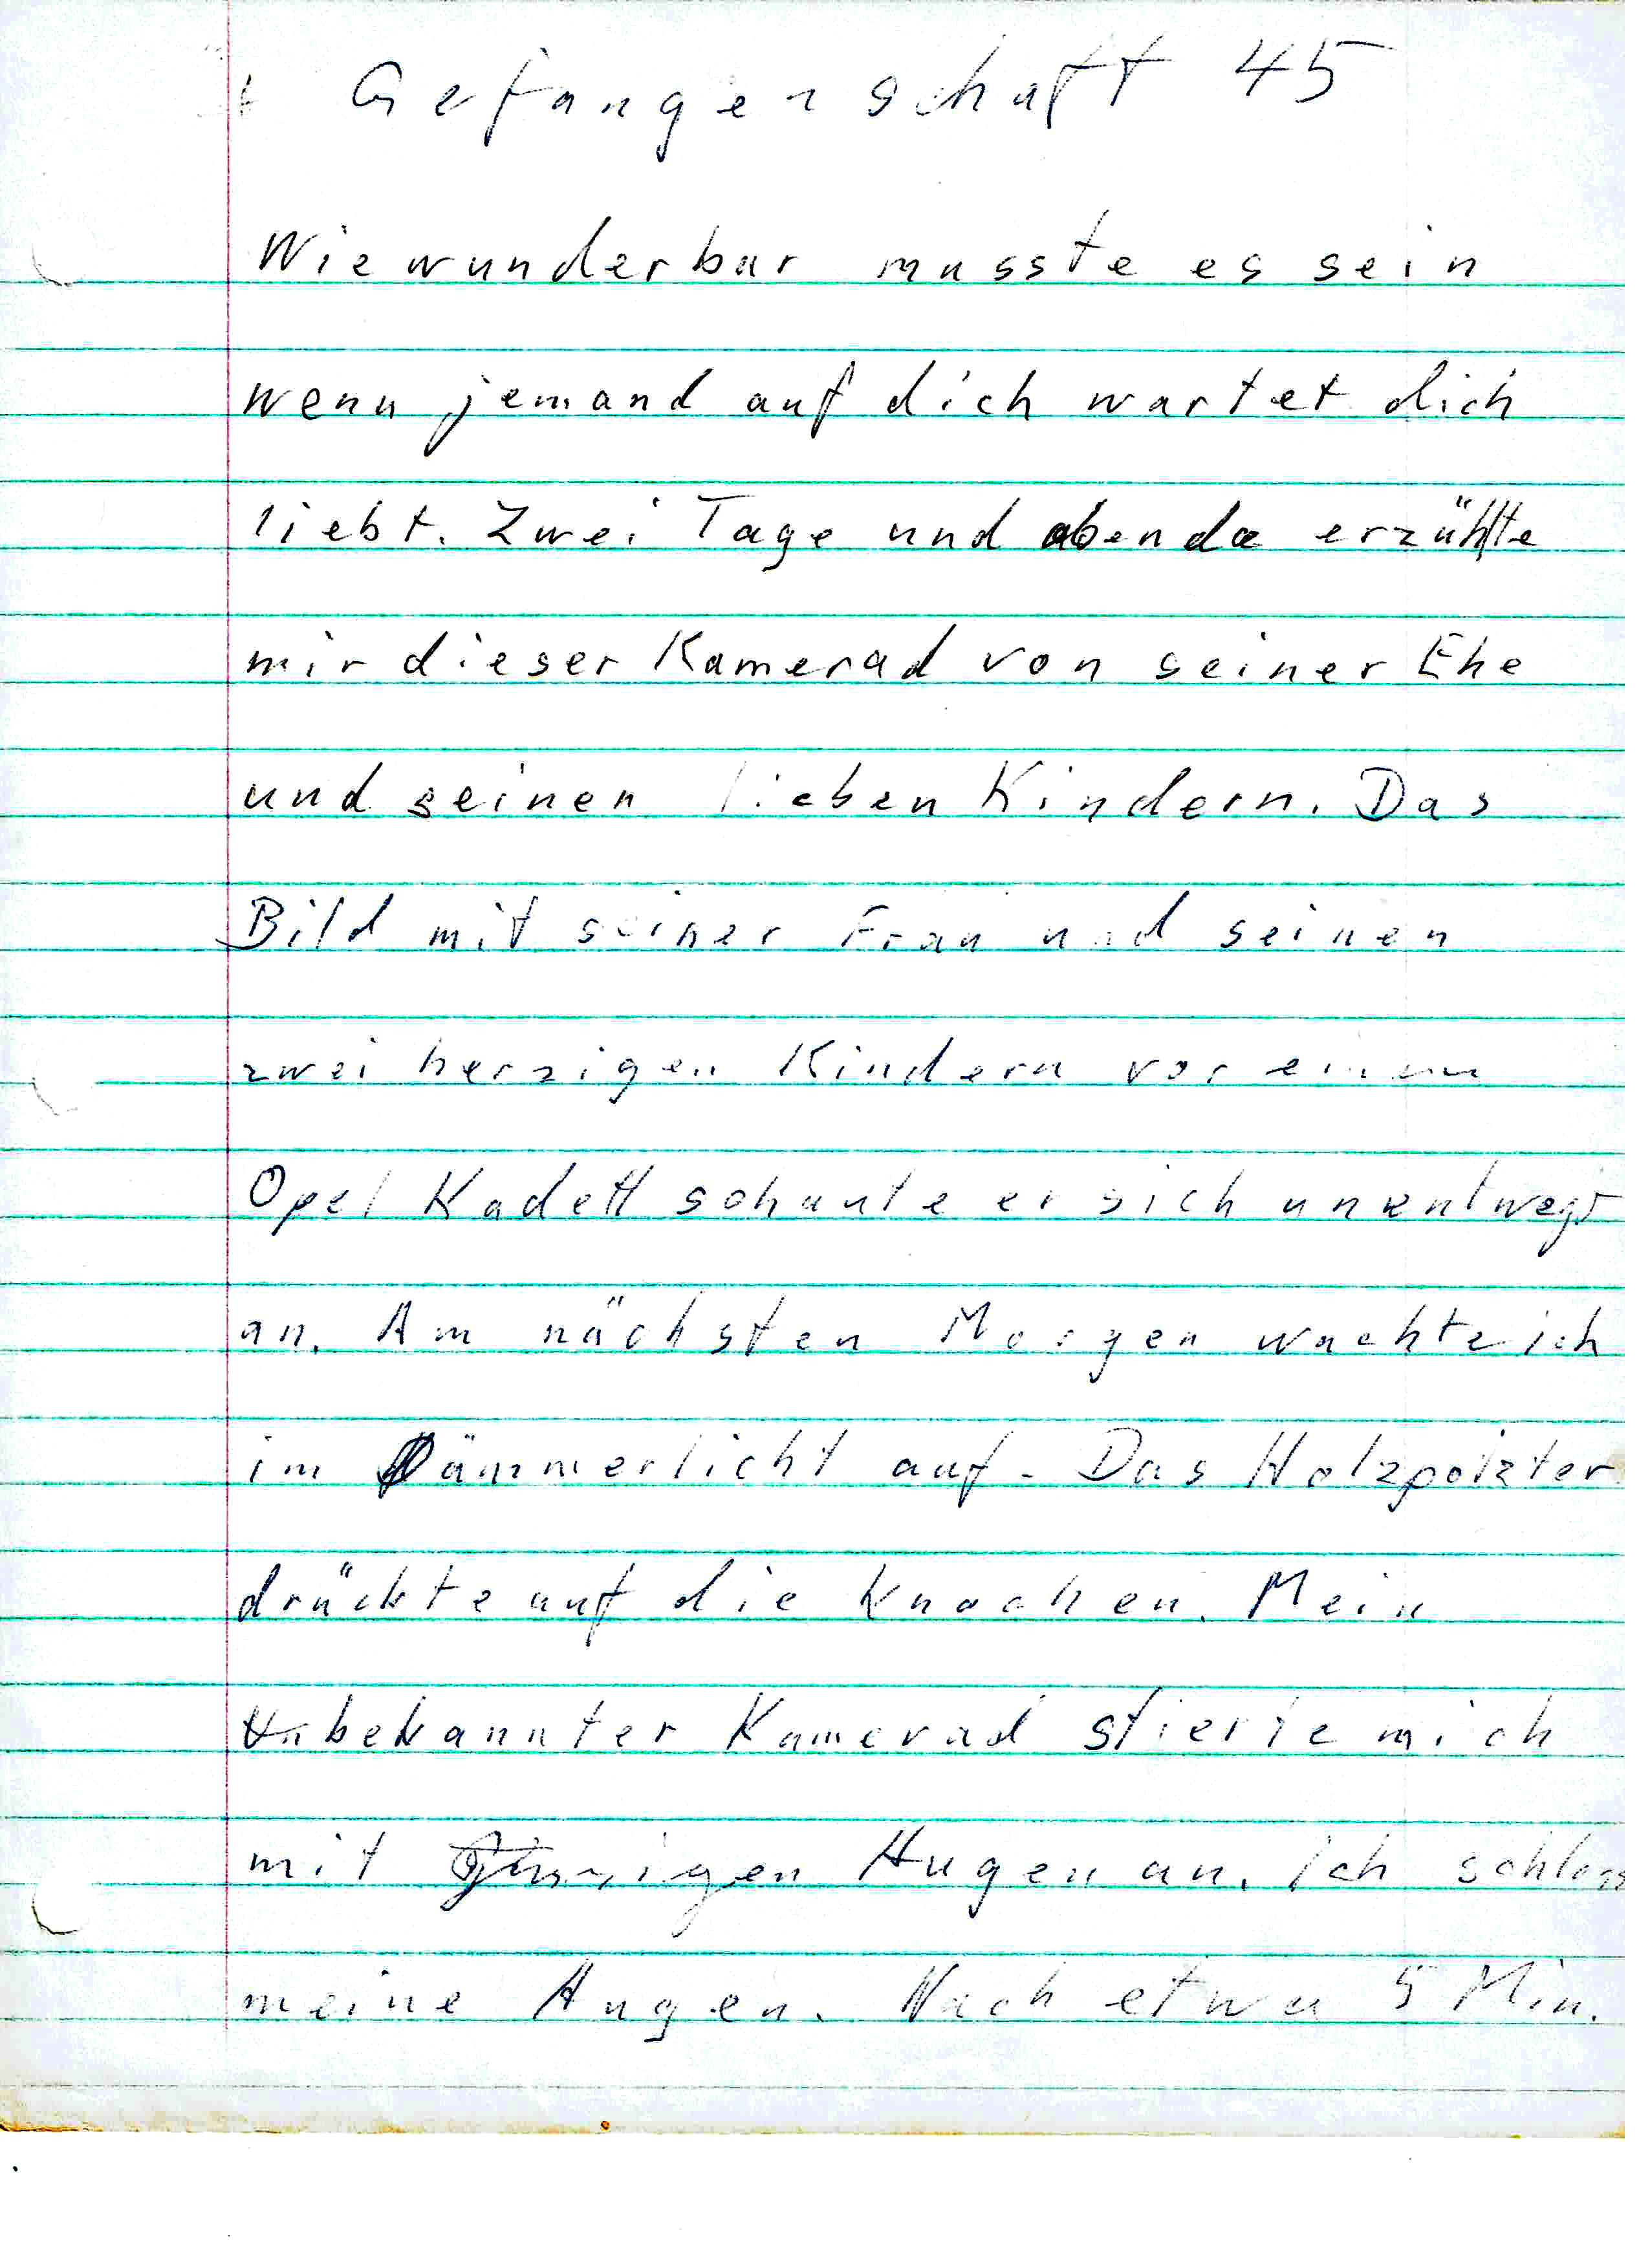 Gefangenschaft 45
Wie wunderbar musste es sein
wenn jemand auf dich wartet dich
liebt. Zwei Tage und abende erzählte
mir dieser Kamerad von seiner Ehe
und seinen lieben Kindern. Das
Bild mit seiner Frau und seinen
zwei herzigen Kindern vor einem
Opel Kadett schaute er sich unentwegt
an. Am nächsten Morgen wachte ich
im Dämmerlicht auf. Das Holzpolster
drückte auf die Knochen. Mein
Unbekannter Kamerad stierte mich
mit Augen an. Ich schloss
meine Augen. Nach etwa 5 Min.